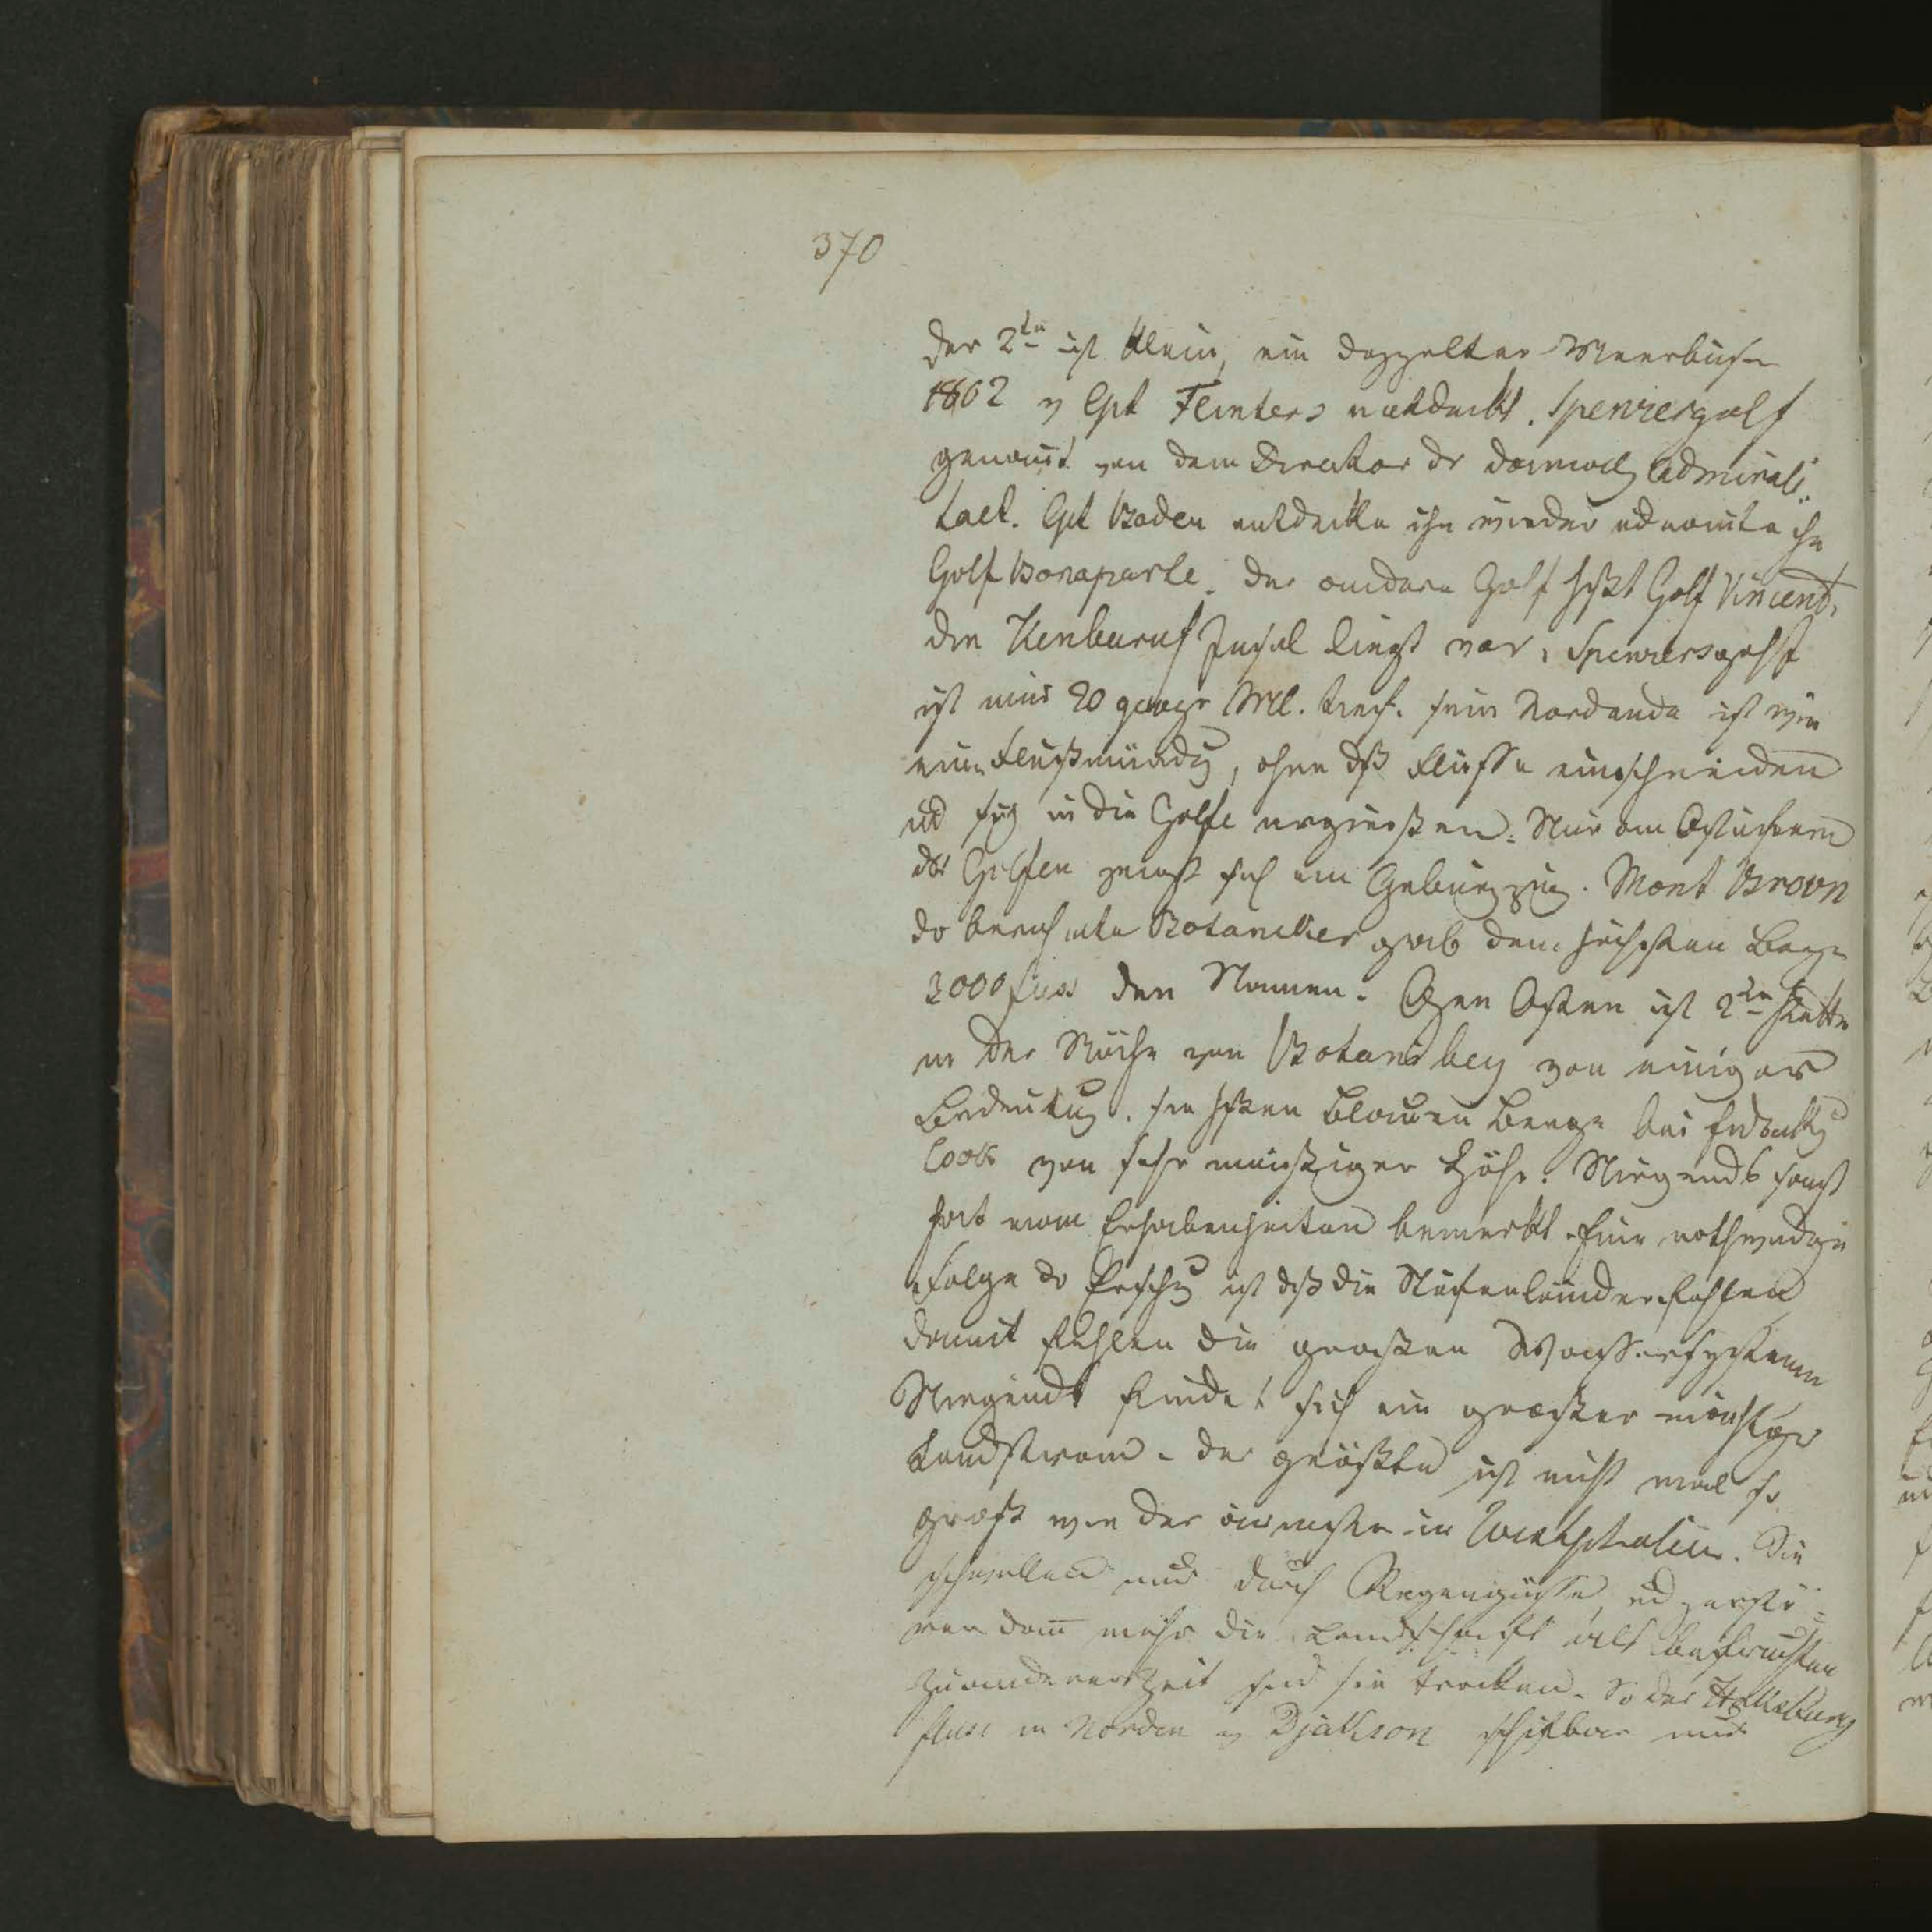 370
der 2te ist klein, ein doppelter Meerbusen
1802 v Cpt Flinters entdeckt. Spenzergolf
genannt von dem Direktor dr damalig Admirali-
taet. Cpt Boden entdeckte ihn wieder ud nannte ihn
Golf Bonaparte. Der andere Golf heißt Golf Vincent,
die Insel liegt vor, Spenzersgolf
ist nur 20 geogr Ml. tief. sein Nordende ist wie
eine Flußmündg, ohne dß Flüsse einschneiden
ud sich in die Golfe ergießen. Nur am Ostufern
des Golfen zeigt sich ein Gebürgzug. Mont Brown
dr beruhmte Botaniker gab dem höchsten Berge
3000 fuss den Namen. Gen Osten ist 2te Kette
in der Nähe von Botanibey von einiger
Bedeutug. sie heißen blauen Berge bei
Cook von sehr mäßiger Höhe. Nirgends sonst
hat man Erhabenheiten bemerkt. Eine nothwendge
Folge dr ist dß die Stufenländer fehlen
damit fehlen die großen Wassersysteme
Nirgends findet sich ein großer mächtger
Landstrom. der größte ist nicht mal so
groß wie der in Westphalen. Sie
schwellen nur durch Regengüsse, ud zerstö-
ren dann mehr die Landschaft als befruchten
zu anderer Zeit sind sie trocken. So der
fluss in Norden v Djakson schifbar nur